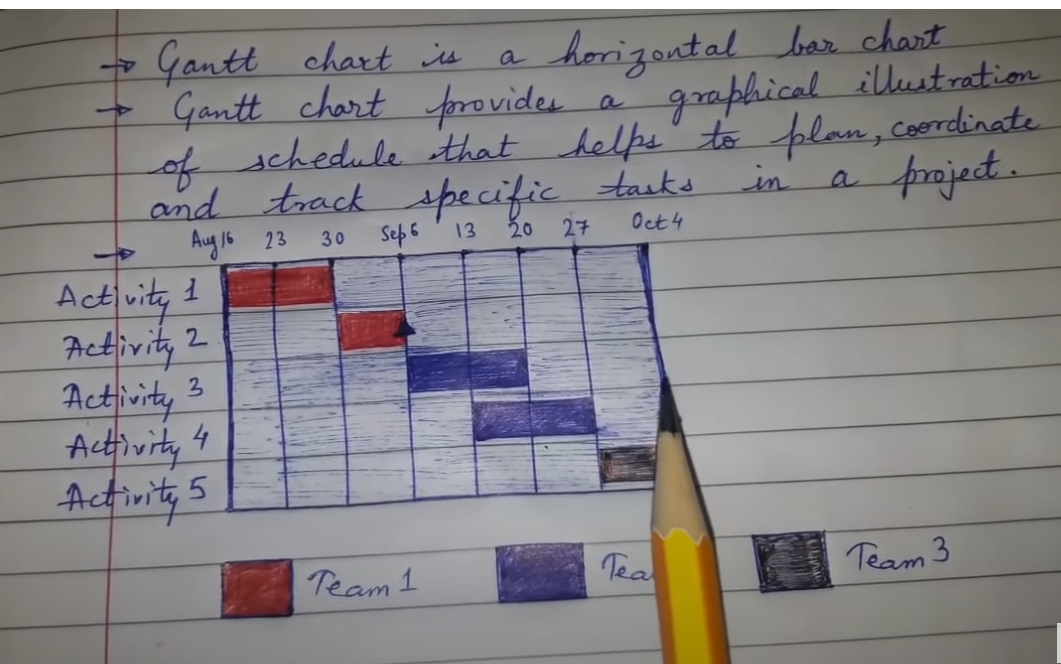 → Gantt chart is a horizontal bar chart
→ Gantt chart provides a graphical illustration
of schedule that helps to plan, coordinate
and track specific tasks in a project.
→ Aug 16 23 30 Sep 6 13 20 27 Oct 4
Activity 1
Activity 2
Activity 3
Activity 4
Activity 5
Team 1 Tea Team 3